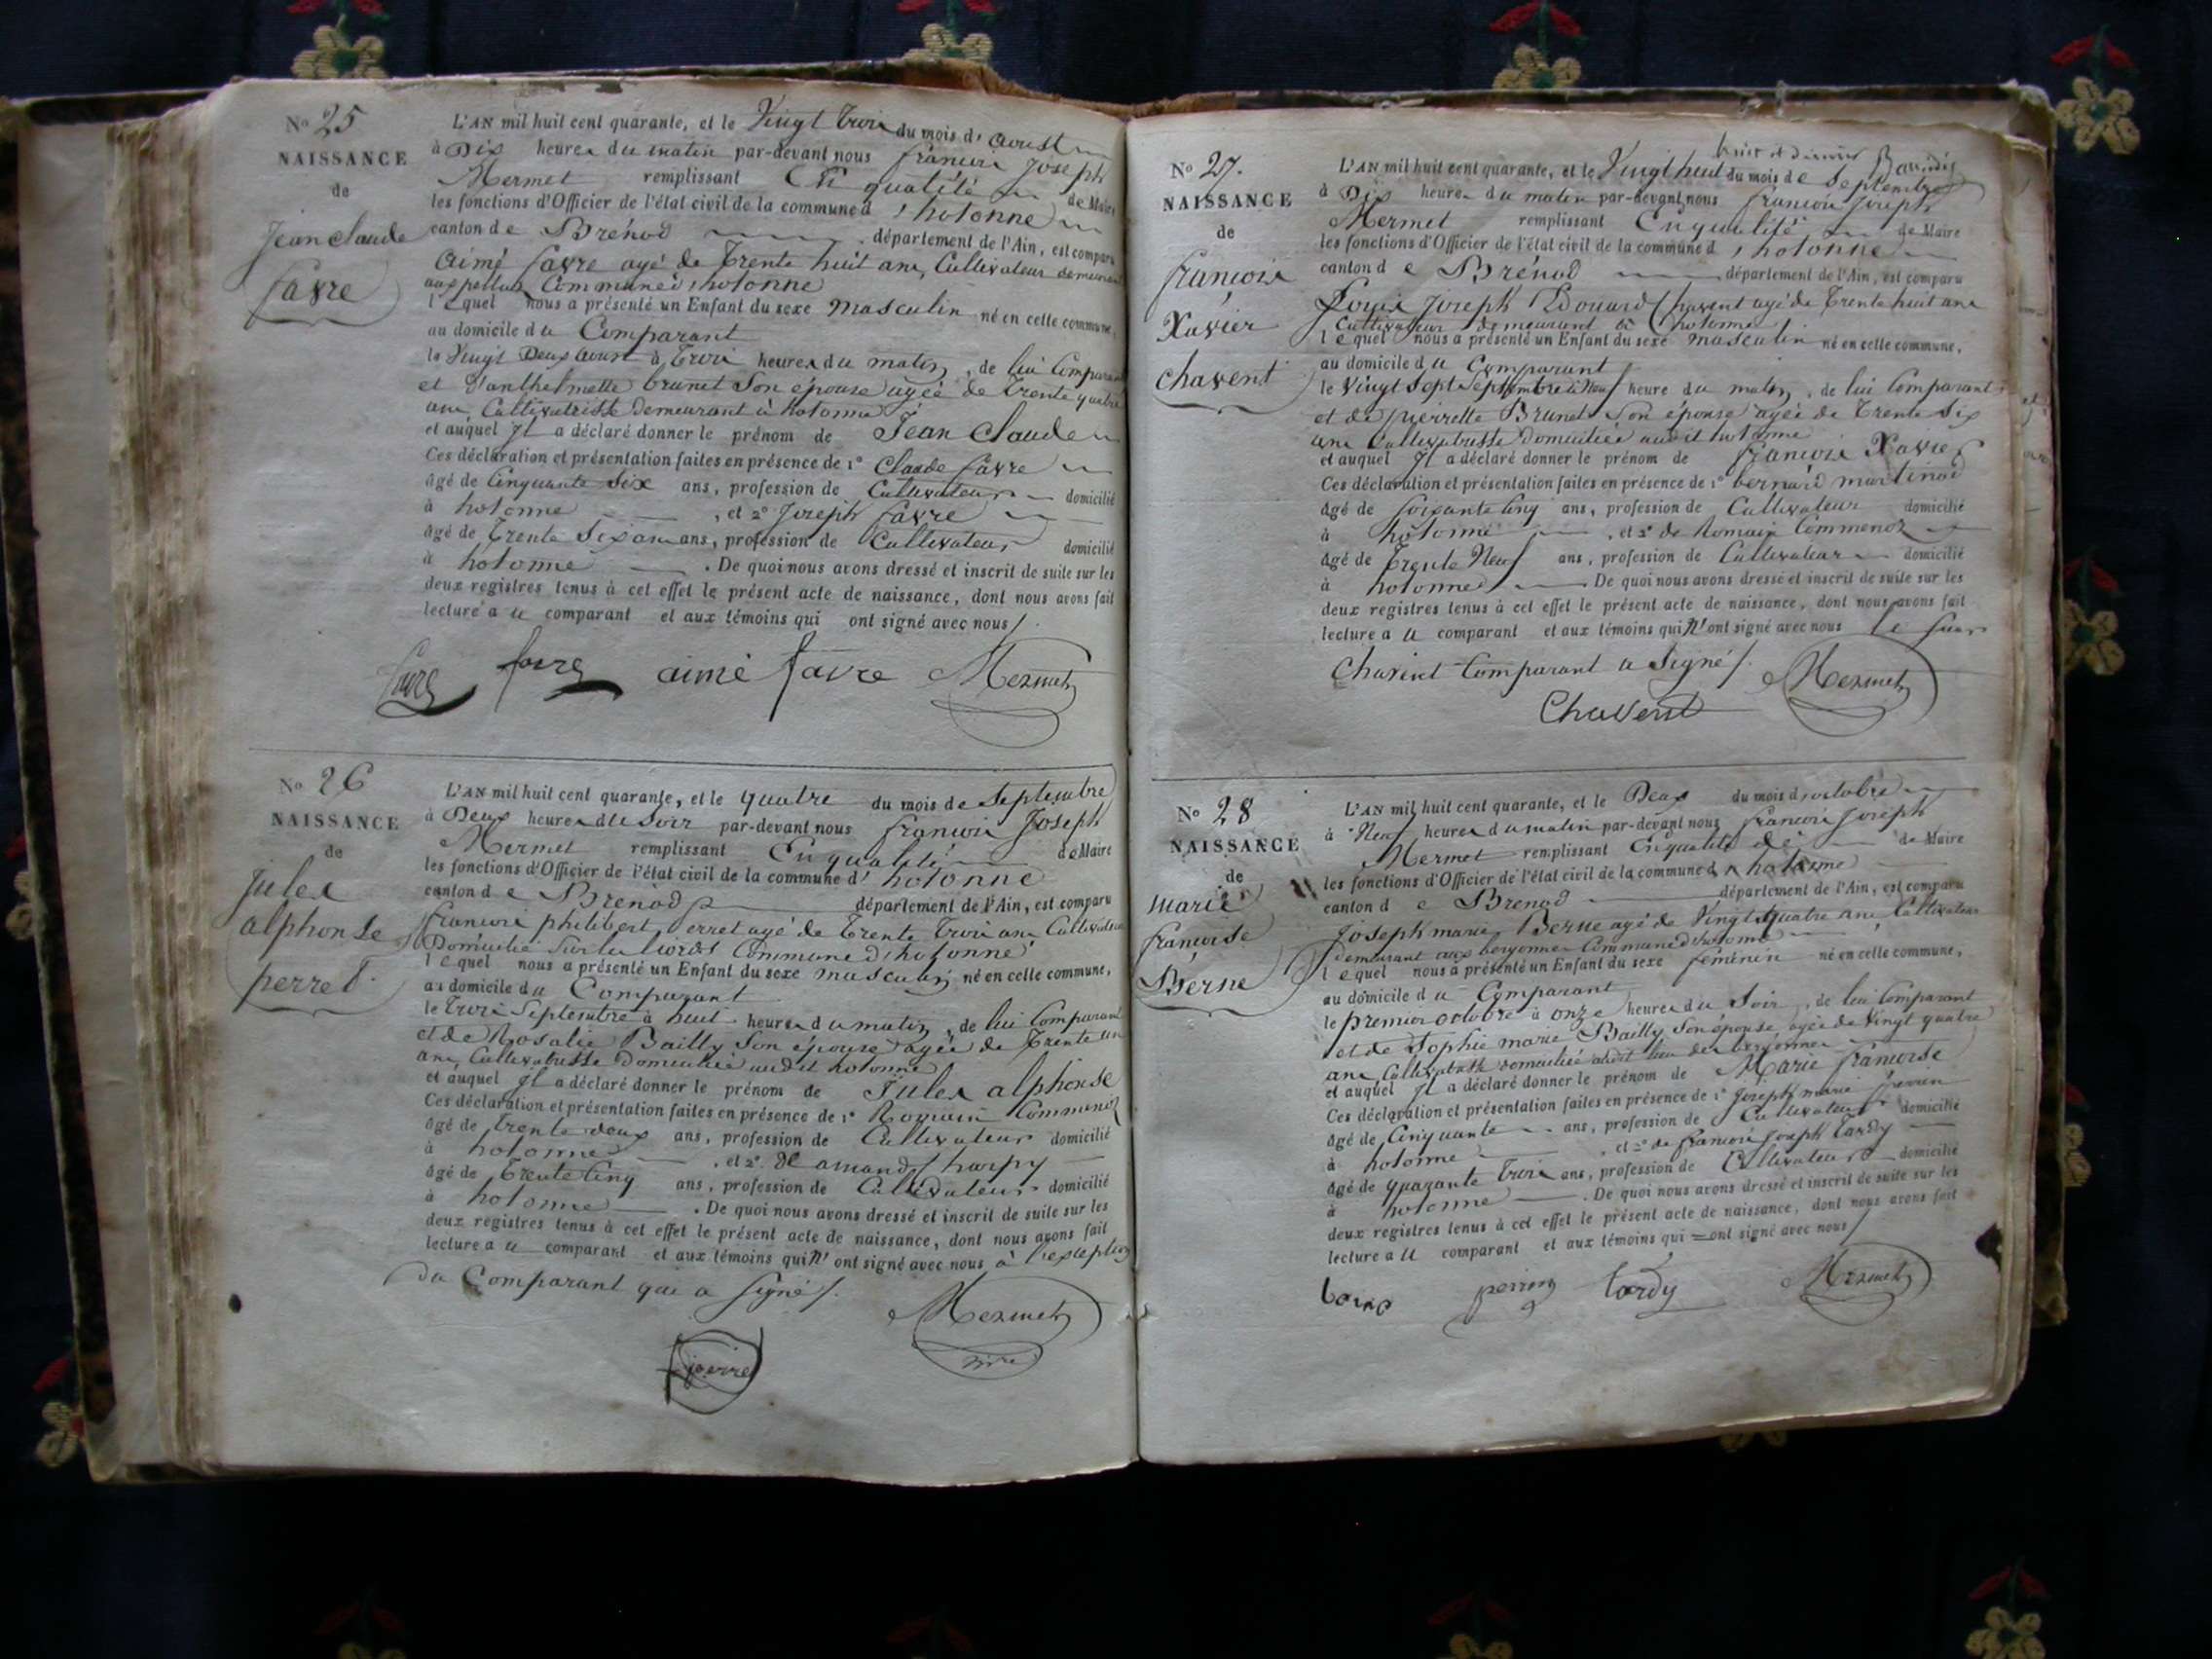 No 25
NAISSANCE
de
Jean claude
favre
L'AN mil huit cent quarante, et le Vingt Trois du mois d' Aoust
à Dix heures du matin par-devant nous francois Joseph
Mermet remplissant En qualité de Maire
les fonctions d'Officier de l'état civil de la commune d'hotonne
canton de Brénod département de l'Ain, est comparu
Aimé favre agé de Trente huit ans, Cultivateur demeurant
Commune d'hotonne
lequel nous a présenté un Enfant du sexe masculin né en cette commune,
au domicile du Comparant
le Vingt Deux Aoust à Trois heures du matin, de lui Comparant
et d'anthelmette brunet Son épouse agée de Trente quatre
ans, Cultivatrisse Demeurant à hotonne
et auquel Il a déclaré donner le prénom de Jean Claude
Ces déclaration et présentation faites en présence de 1° Claude favre
âgé de Cinquante Six ans, profession de Cultivateur domicilié
à hotonne, et 2° Joseph favre
âgé de Trente Six ans ans, profession de Cultivateur domicilié
à hotonne. De quoi nous avons dressé et inscrit de suite sur les
deux registres tenus à cet effet le présent acte de naissance, dont nous avons fait
lecture a u comparant et aux témoins qui ont signé avec nous
favre favre aimé favre Mermet
No 26
NAISSANCE
de
Jules
alphonse
perret
L'AN mil huit cent quarante, et le quatre du mois de Septembre
à Deux heures du Soir par-devant nous francois Joseph
Mermet remplissant En qualité de Maire
les fonctions d'Officier de l'état civil de la commune d'hotonne
canton de Brenod département de l'Ain, est comparu
francois philibert perret agé de Trente Trois ans Cultivateur
Domicilié Sur les Commune d'hotonne
lequel nous a présenté un Enfant du sexe masculin né en cette commune,
au domicile du Comparant
le Trois Septembre à huit heures du matin, de lui Comparant
et de Rosalie Bailly Son épouse agée de Trente un
ans, Cultivatrisse Domiciliée audit hotonne
et auquel Il a déclaré donner le prénom de Jules alphonse
Ces déclaration et présentation faites en présence de 1° Romain Commenoz
âgé de trente deux ans, profession de Cultivateur domicilié
à hotonne, et 2° de amand
âgé de Trente Cinq ans, profession de Cultivateur domicilié
à hotonne. De quoi nous avons dressé et inscrit de suite sur les
deux registres tenus à cet effet le présent acte de naissance, dont nous avons fait
lecture a u comparant et aux témoins qui n'ont signé avec nous à l'exception
du Comparant qui a Signé
Mermet
No 27.
NAISSANCE
de
francois
Xavier
Chavent
L'AN mil huit cent quarante, et le Vingt huit du mois de Septembre
à Dix heures du matin par-devant nous francois Joseph
Mermet remplissant En qualité de Maire
les fonctions d'Officier de l'état civil de la commune d'hotonne
canton de Brénod département de l'Ain, est comparu
Louis Joseph Edouard Chavent agé de Trente huit ans
Cultivateur demeurant à hotonne
lequel nous a présenté un Enfant du sexe masculin né en cette commune,
au domicile du Comparant
le Vingt Sept Septembre à Neuf heure du matin, de lui Comparant
et de pierrette Brunet Son épouse agée de Trente Six
ans Cultivatrisse Domiciliée audit hotonne
et auquel Il a déclaré donner le prénom de francois Xavier
Ces déclaration et présentation faites en présence de 1° bernard martinod
âgé de Soixante Cinq ans, profession de Cultivateur domicilié
à hotonne, et 2° de Romain Commenoz
âgé de Trente Neuf ans, profession de Cultivateur domicilié
à hotonne. De quoi nous avons dressé et inscrit de suite sur les
deux registres tenus à cet effet le présent acte de naissance, dont nous avons fait
lecture a u comparant et aux témoins qui n'ont signé avec nous le
Chavent Comparant a Signé
Mermet
Chavent
No 28
NAISSANCE
de
Marie
francoise
Berne
L'AN mil huit cent quarante, et le Deux du mois d'octobre
à Neuf heures du matin par-devant nous francois Joseph
Mermet remplissant En qualité de de Maire
les fonctions d'Officier de l'état civil de la commune d'hotonne
canton de Brenod département de l'Ain, est comparu
Joseph marie Berne agé de Vingt quatre ans Cultivateur
demeurant aux bergonnes Commune d'hotonne
lequel nous a présenté un Enfant du sexe féminin né en cette commune,
au domicile du Comparant
le premier octobre à onze heures du Soir, de lui Comparant
et de Sophie marie Bailly Son épouse agée de Vingt quatre
ans Cultivatrisse domiciliée audit lieu des bergonnes
et auquel Il a déclaré donner le prénom de Marie francoise
Ces déclaration et présentation faites en présence de 1° Joseph marie perrin
âgé de Cinquante ans, profession de Cultivateur domicilié
à hotonne, et 2° de francois Joseph tardy
âgé de quarante Trois ans, profession de Cultivateur domicilié
à hotonne. De quoi nous avons dressé et inscrit de suite sur les
deux registres tenus à cet effet le présent acte de naissance, dont nous avons fait
lecture a u comparant et aux témoins qui ont signé avec nous
perrin tardy Mermet